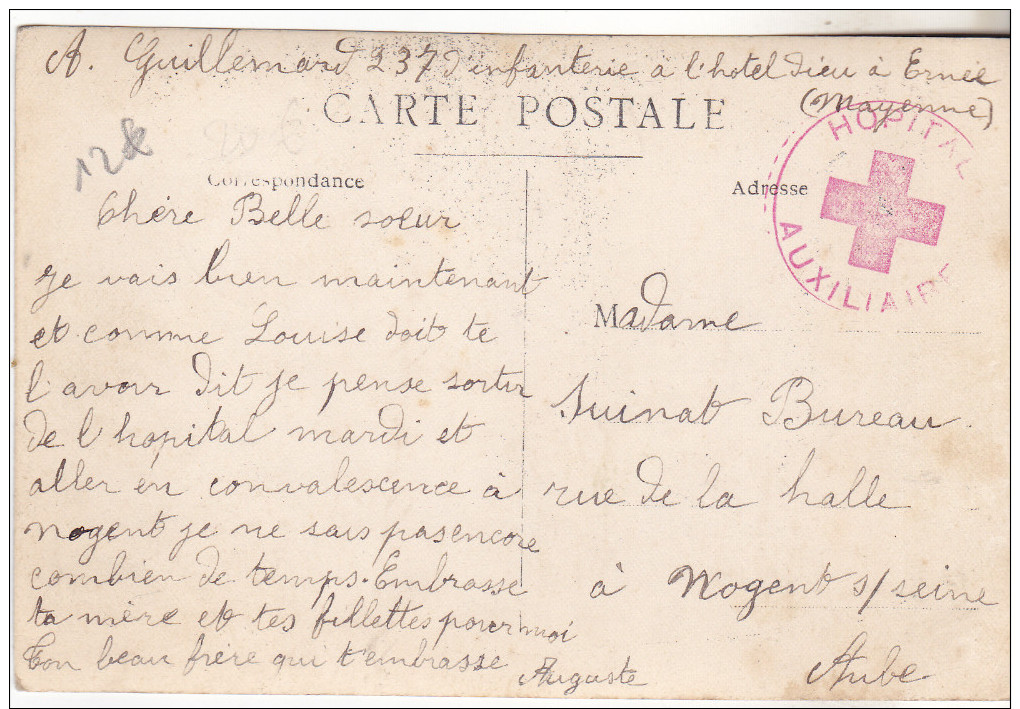 A. Guillemard 237 d'infanterie a l'hotel Dieu à Ernée
(Mayenne)
CARTE POSTALE
12€
HOPITAL
AUXILIAIRE
Correspondance
Adresse
Chère Belle soeur
Je vais bien maintenant
et comme Louise doit te
l'avoir dit je pense sortir
de l'hopital mardi et
aller en convalescence à
Nogent je ne sais pas encore
combien de temps. Embrasse
ta mère et tes fillettes pour moi
Ton beau frère qui t'embrasse
Auguste
Madame
Suinat Bureau
rue de la halle
à Nogent s/seine
Aube